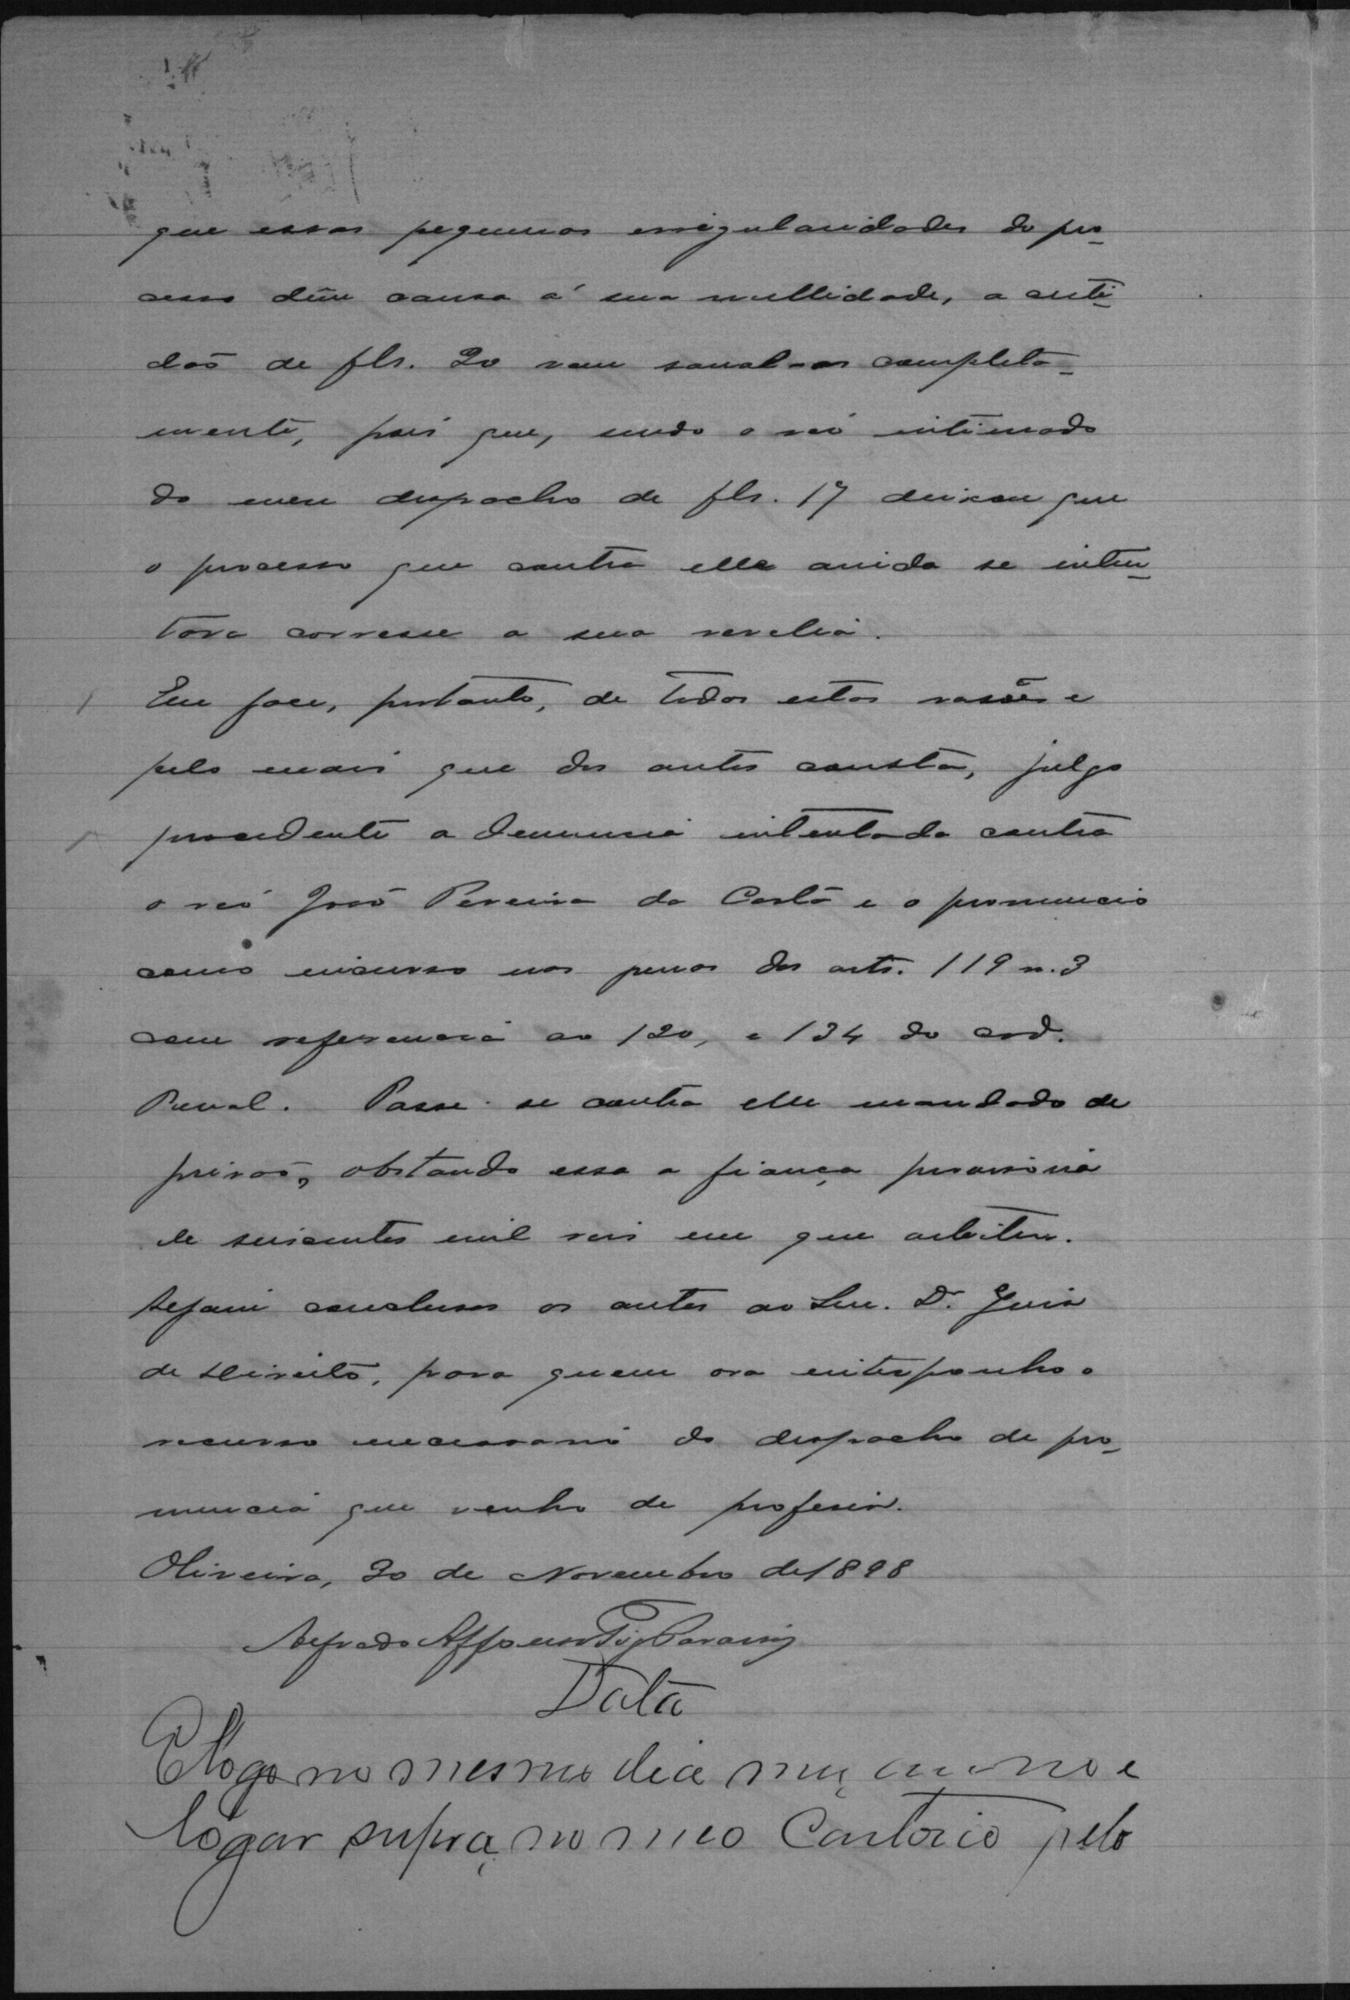 que essas pequenas irregularidades do pro-
cesso dêm causa á sua nullidade, a certi-
dão de fls. 20 vem sanal-as completa-
mente, pois que, sendo o réo intimado
do meu despacho de fls. 17 deixou que
o processo que contra elle ainda se inten-
tava corresse a sua revelia.
Em face, portanto, de todas estas rasões e
pelo mais que dos autos consta, julgo
procedente a denuncia intentada contra
o réo José Pereira da Costa e o pronuncio
como incurso nas penas dos arts. 119 n. 3
com referencia ao 120, e 134 do cod.
Penal. Passe-se contra elle mandado de
prisão, obstando essa a fiança provisoria
de seiscentos mil reis em que arbitro.
Sejam conclusos os autos ao Snr. Dr. Juiz
de Direito, para quem ora interponho o
recurso necessario do despacho de pro-
nuncia que venho de proferir.
Oliveira, 20 de Novembro de 1898
Alfredo Affonso
Data
E logo no mesmo dia mez anno e
logar supra, no meo Cartorio pelo